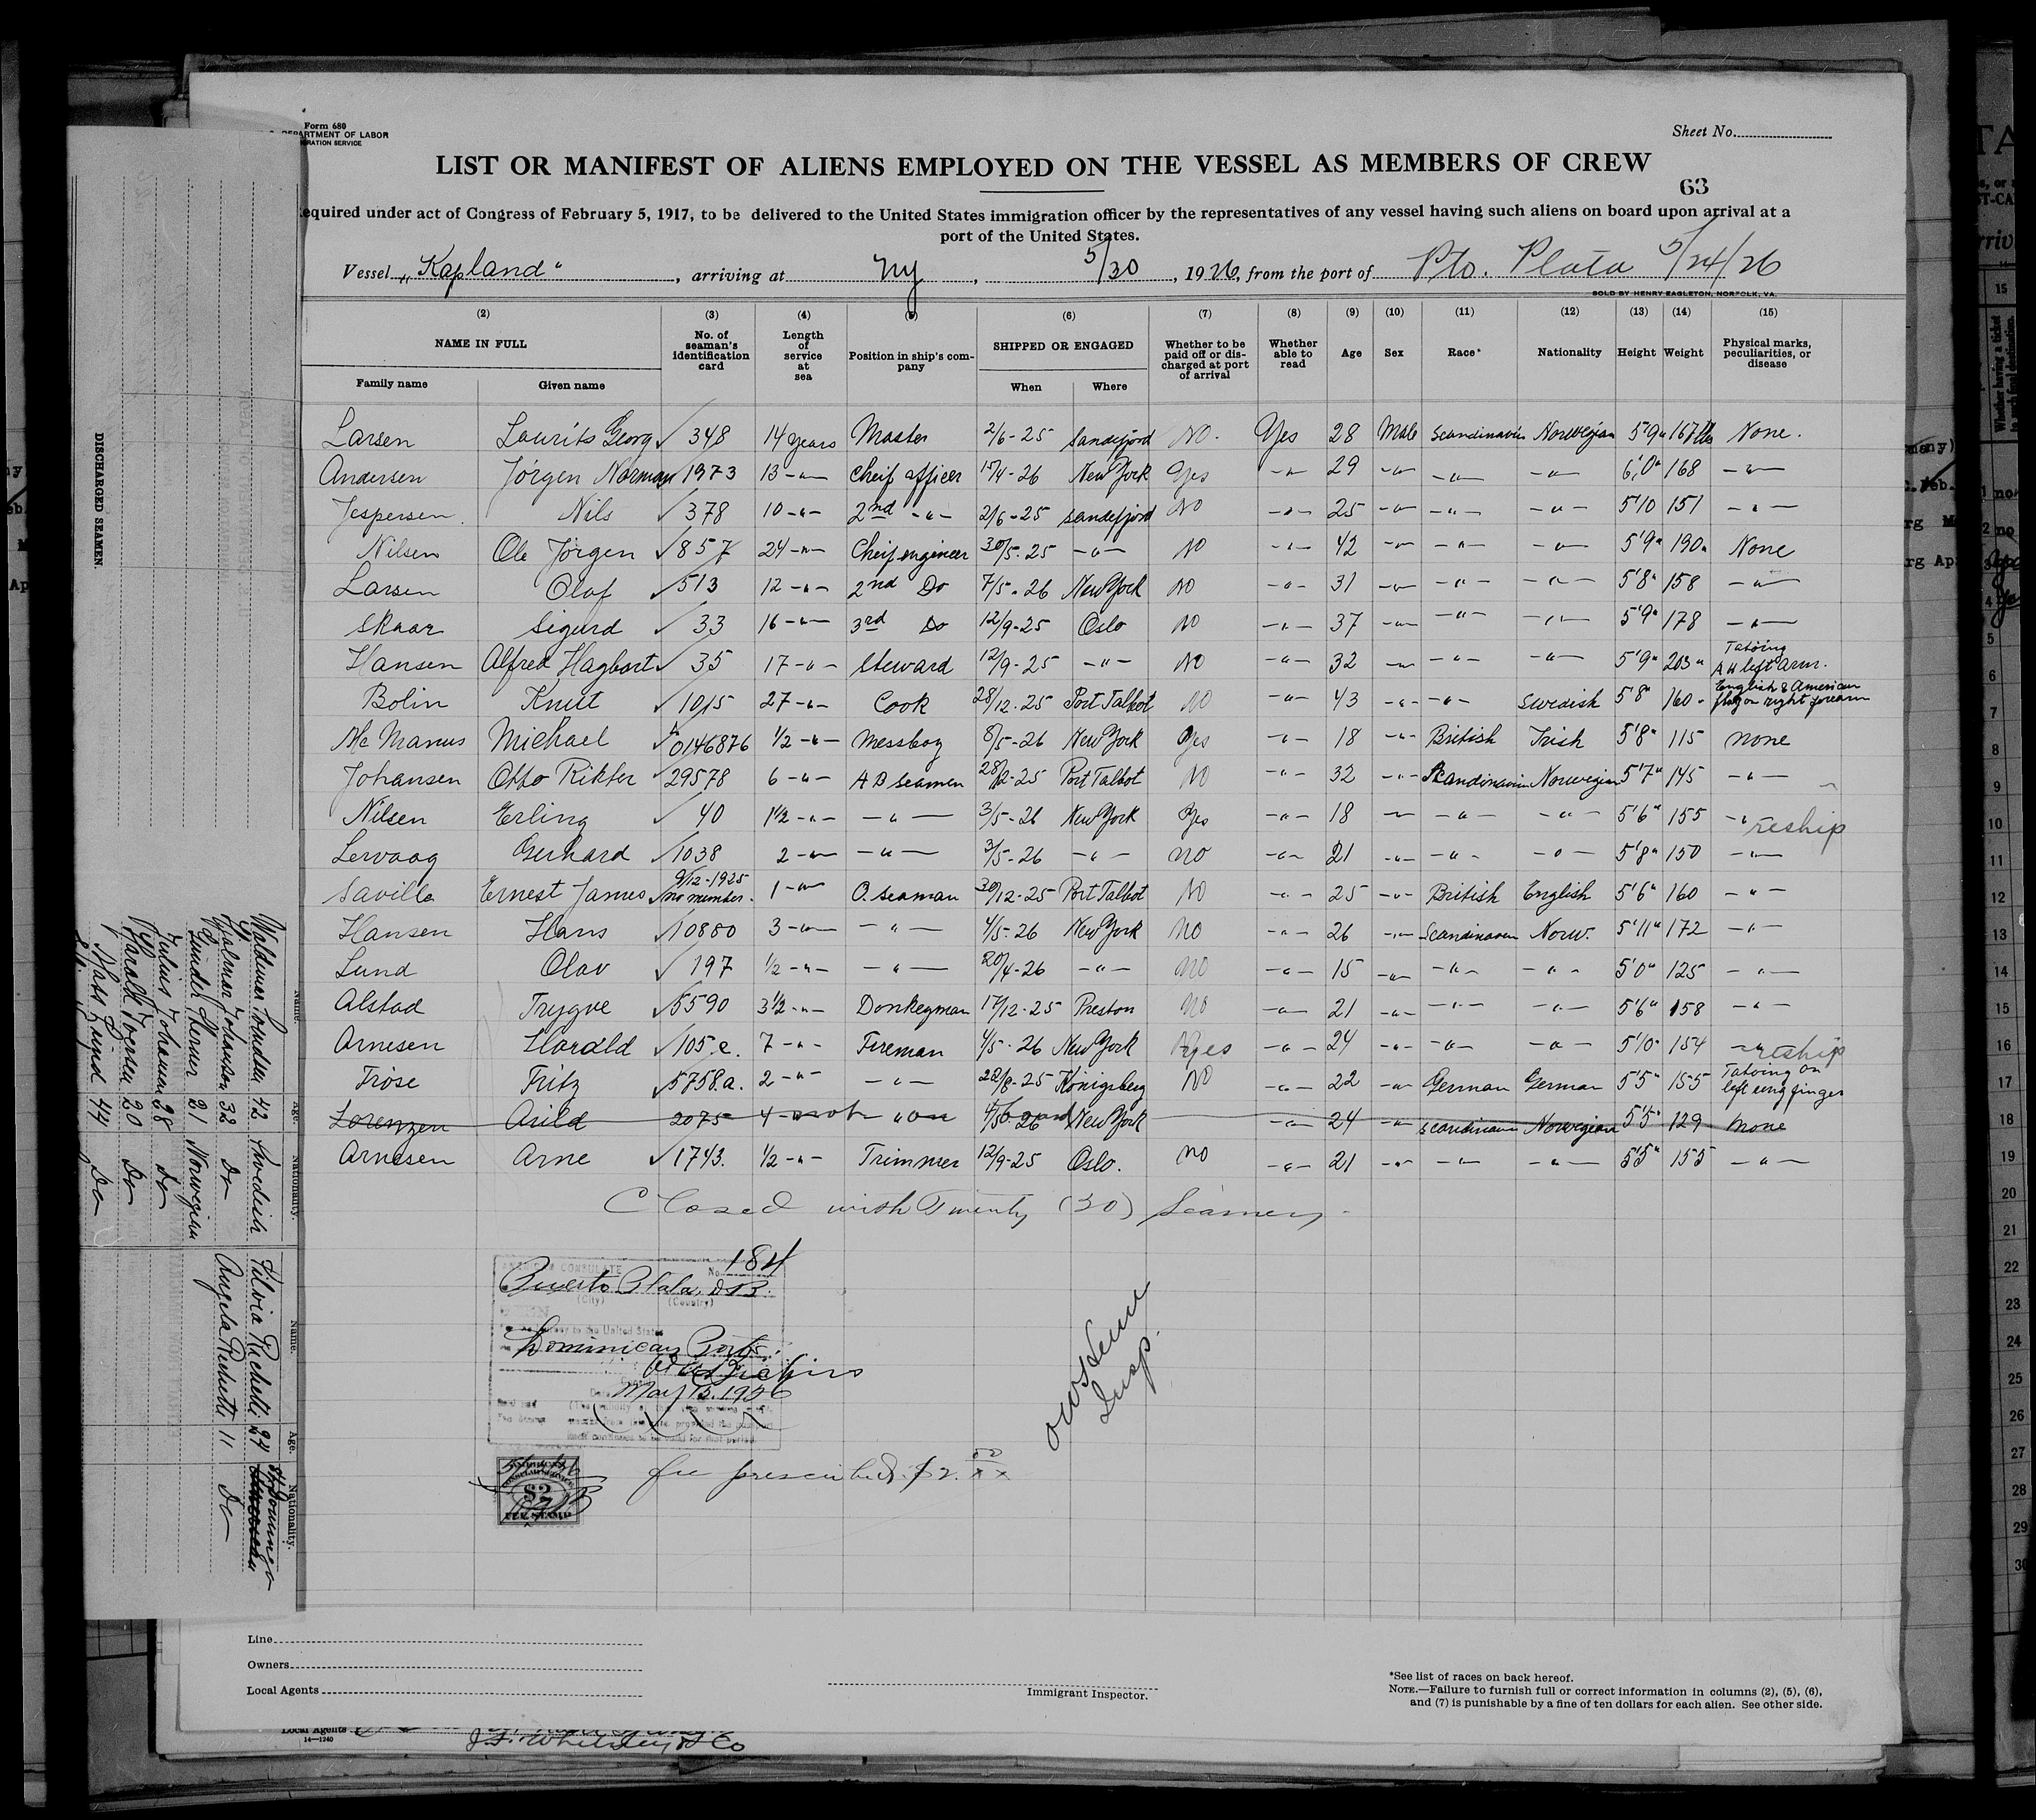 Form 680
DEPARTMENT OF LABOR
IMMIGRATION SERVICE
Sheet No.
LIST OR MANIFEST OF ALIENS EMPLOYED ON THE VESSEL AS MEMBERS OF CREW
63
equired under act of Congress of February 5, 1917, to be delivered to the United States immigration officer by the representatives of any vessel having such aliens on board upon arrival at a
port of the United States.
Vessel "Kapland", arriving at Ny, 5/30, 1926, from the port of Pto. Plata 5/24/26
SOLD BY HENRY EAGLETON, NORFOLK, VA.
(2) (3) (4) (5) (6) (7) (8) (9) (10) (11) (12) (13) (14) (15)
NAME IN FULL No. of seaman's identification card Length of service at sea Position in ship's company SHIPPED OR ENGAGED Whether to be paid off or discharged at port of arrival Whether able to read Age Sex Race* Nationality Height Weight Physical marks, peculiarities, or disease
Family name Given name When Where
Larsen Laurits Georg 348 14 years Master 2/6-25 Sandefjord No. Yes 28 Male Scandinavien Norwegian 5'9" 167 lbs None.
Andersen Jørgen Norman 1973 13 -"- Cheif officer 15/4-26 New York Yes -"- 29 -"- -"- -"- 6'0" 168 -"-
Jespersen Nils 378 10 -"- 2nd -"- 2/6-25 Sandefjord No -"- 25 -"- -"- -"- 5'10 151 -"-
Nilsen Ole Jørgen 857 24 -"- Cheif engineer 30/5-25 -"- No -"- 42 -"- -"- -"- 5'9" 190" None
Larsen Olaf 513 12 -"- 2nd Do 7/5-26 New York No -"- 31 -"- -"- -"- 5'8" 158 -"-
Skaar Sigurd 33 16 -"- 3rd Do 12/9-25 Oslo No -"- 37 -"- -"- -"- 5'9" 178 -"-
Hansen Alfred Hagbart 35 17 -"- Steward 12/9-25 -"- No -"- 32 -"- -"- -"- 5'9" 203" Tatoing A H left arm.
Bolin Knut 1015 27 -"- Cook 28/12-25 Port Talbot No -"- 43 -"- -"- Swedish 5'8" 160 English & American flag on right forearm
Mc Manus Michael 0146876 1/2 -"- Messboy 8/5-26 New York Yes -"- 18 -"- British Irish 5'8" 115 none
Johansen Otto Rikter 29578 6 -"- A B Seamen 28/12-25 Port Talbot No -"- 32 -"- Scandinavien Norwegian 5'7" 145 -"-
Nilsen Erling 40 1 1/2 -"- -"- 3/5-26 New York Yes -"- 18 -"- -"- -"- 5'6" 155 -"- reship
Lervaag Gerhard 1038 2 -"- -"- 3/5-26 -"- No -"- 21 -"- -"- -"- 5'8" 150 -"-
Saville Ernest James 9/12-1925 no number. 1 -"- O. Seaman 30/12-25 Port Talbot No -"- 25 -"- British English 5'6" 160 -"-
Hansen Hans 10880 3 -"- -"- 4/5-26 New York No -"- 26 -"- Scandinaven Norw. 5'11" 172 -"-
Lund Olav 197 1/2 -"- -"- 20/4-26 -"- No -"- 15 -"- -"- -"- 5'0" 125 -"-
Alstad Trygve 5590 3 1/2 -"- Donkeyman 17/12-25 Preston No -"- 21 -"- -"- -"- 5'6" 158 -"-
Arnesen Harald 105 e. 7 -"- Fireman 4/5-26 New York Yes -"- 24 -"- -"- -"- 5'10" 154 -"- reship
Tröse Fritz 5758.a. 2 -"- -"- 22/8-25 Königsberg No -"- 22 -"- German German 5'5" 155 Tatoing on left ring finger
Lorenzen Arild 2075 4 not on board 4/5-26 New York -"- 24 -"- Scandinavien Norwegian 5'5" 129 None
Arnesen Arne 1743. 1/2 -"- Trimmer 12/9-25 Oslo. No -"- 21 -"- -"- -"- 5'5" 155 -"-
Closed with Twenty (20) Seamen
No. 184
Puerto Plata, D.R.
(City) (Country)
to the United States
Dominican Ports.
May 1926
Fee prescribed $2.
$2
FEE STAMP
Insp.
1
2
3
4
5
6
7
8
9
10
11
12
13
14
15
16
17
18
19
20
21
22
23
24
25
26
27
28
29
30
DISCHARGED SEAMEN.
Name. Age. Nationality. Name. Age. Nationality.
Waldimar 42 Swedish Silvia Richetti 24
Hjalmar Johanson 32 Do Angela Richetti 11 Do
Gunder 21 Norwegian
Julius Johansen 28 Do
Harald Iversen 20 Do
Lund 44 Do
Line
Owners
Local Agents
Immigrant Inspector.
*See list of races on back hereof.
NOTE.—Failure to furnish full or correct information in columns (2), (5), (6),
and (7) is punishable by a fine of ten dollars for each alien. See other side.
Local Agents
14—1240